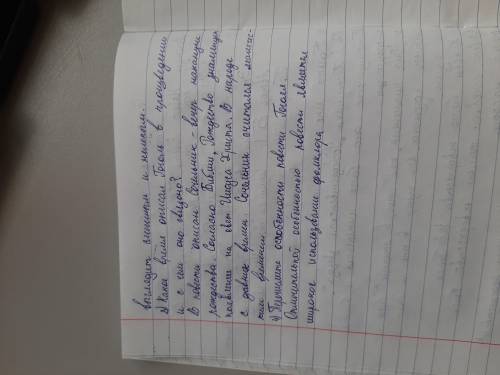 выглядит смешным и нелепым.
2) Какое время описал Гоголь в произведении
и с чем оно связано?
В повести описан Сочельник - вечер накануне
рождества. Согласно Библии, Рождество знаменует
появление на свет Иисуса Христа. В народе
с давних времен Сочельник считался
тим временем.
3) Перечислите особенности повести Гоголя.
Отличительной особенностью повести является
широкое использование фольклора.